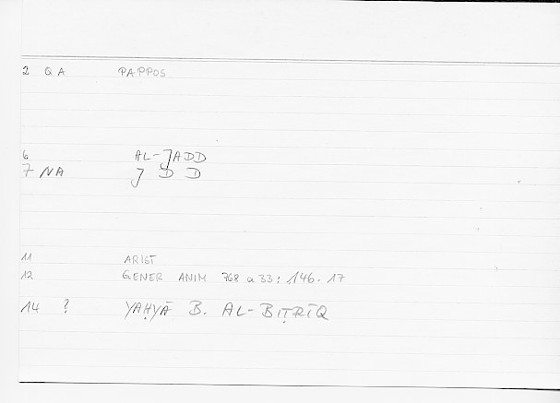 2 GA PAPPOS
6 AL-JADD
7 NA J D D
11 ARIST
12 GENER ANIM 768 a 33: 146.17
14 ? YAḤYĀ B. AL-BIṬRĪQ